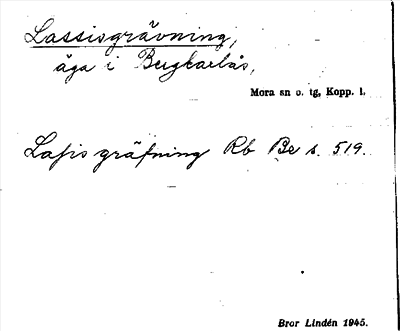 Lassisgrävning,
äga i Bergkarlås,
Mora sn o. tg, Kopp. l.
Lafis gräfning Rb Be s. 519.
Bror Lindén 1945.